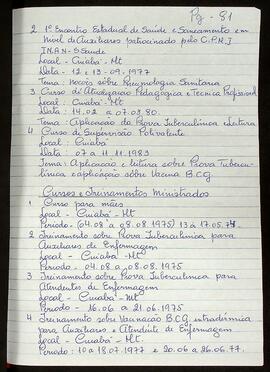 Pg - 81
2 1º Encontro Estadual de Saúde e Saneamento em
nível de Auxiliares patrocinado pelo C.P.N.I
I.N.A.N - S. Saúde
Local - Cuiabá - Mt
Data - 12 e 13 - 09. 1977
Tema: noções sobre Pneumologia Sanitaria
3 Curso de Atualização Pedagogica e Tecnica Profissional
Local : Cuiabá - Mt
Data : 14.02 a 07.03 80.
Tema : Aplicação da Prova Tuberculinica e Leitura
4 Curso de Supervisão Polivalente
Local : Cuiabá
Data : 07 a 11 11. 1983
Tema : Aplicação e leitura sobre Prova Tubercu-
linica e aplicação sobre Vacina B.C.G
Cursos e Treinamentos Ministrados
1 Curso para mães
Local - Cuiabá - Mt
Periodo - (04.08 a 08.08 1975) 13 à 17.05.74.
2 Treinamento sobre Prova Tuberculinica para
Auxiliares de Enfermagem
Local - Cuiabá - Mt.
Periodo - 04.08 a 08.08.1975
3 Treinamento sobre Prova Tuberculinica para
Atendentes de Enfermagem
Local - Cuiabá - Mt
Periodo - 16.06 a 21.06.1975
4 Treinamento sobre Vacinação B.C.G. intradérmica
para Auxiliares e Atendente de Enfermagem
Local - Cuiabá - Mt.
Periodo : 10 a 18.07.1977 e 20.06 a 26.06.77.